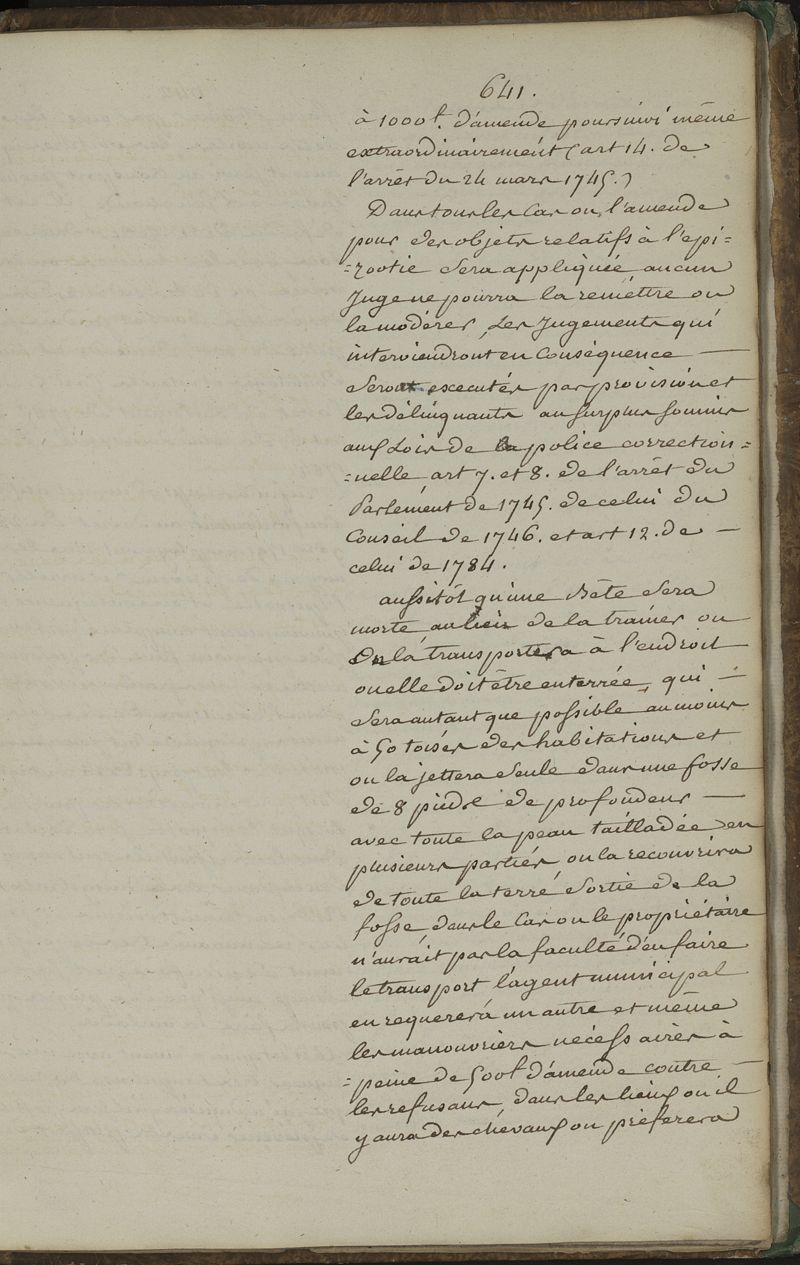 641.
à 1000 l. d'amende poursuivi même
extraordinairement (art 14. de
l'arrêt du 24 mars 1745.)
Dans tous les cas ou l'amende
pour des objets relatifs à l'epi=
=zootie sera appliquée aucun
Juge ne pourra la remêttre ou
la modérer, Les Jugements qui
interviendront en Conséquence —
seront executés par provision et
les délinquants au surplus soumis
aux Lois de la police correction=
=nelle art 7. et 8. de l'arrêt du
Parlement de 1745. de celui du
Conseil de 1746. et art 12. de —
celui de 1784.
aussitôt qu'une Bête sera
morte au lieu de la trainer on
la transportera à l'endroit
ou elle doit être enterrée, qui —
sera autant que possible au moins
à 50 toises des habitations et
on la jettera seule dans une fosse
de 8 pieds de profondeur —
avec toute la peau tailladée en
plusieurs parties, on la recouvrira
de toute la terre sortie de la
fosse dans le Cas ou le propriétaire
n'aurait pas la faculté d'en faire
le transport l'agent municipal
en requerera un autre et même
les manouvriers necéssaires à
=peine de 500 l. d'amende contre —
les refusans, dans les lieux ou il
y aura des chevaux on préferera